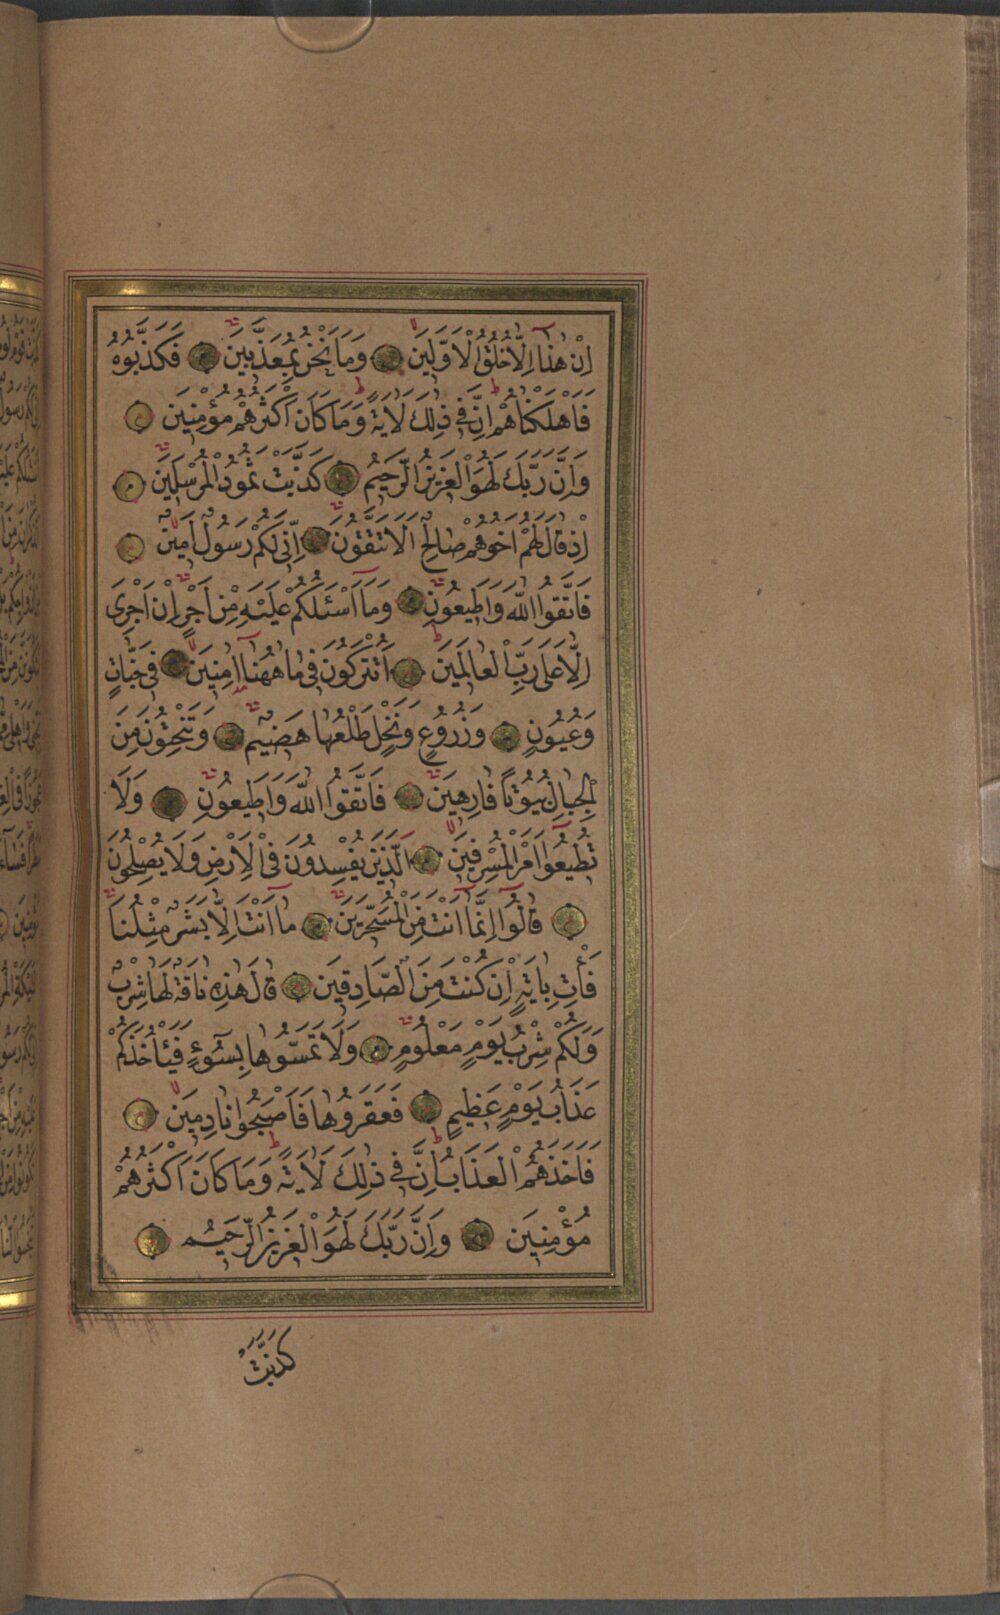 اِنْ هٰذَٓا اِلَّا خُلُقُ الْاَوَّلٖينَ وَمَا نَحْنُ بِمُعَذَّبٖينَ فَكَذَّبُوهُ
فَاَهْلَكْنَاهُمْ اِنَّ فٖي ذٰلِكَ لَاٰيَةً وَمَا كَانَ اَكْثَرُهُمْ مُؤْمِنٖينَ
وَاِنَّ رَبَّكَ لَهُوَ الْعَزٖيزُ الرَّحٖيمُ كَذَّبَتْ ثَمُودُ الْمُرْسَلٖينَ
اِذْ قَالَ لَهُمْ اَخُوهُمْ صَالِحٌ اَلَا تَتَّقُونَ اِنّٖي لَكُمْ رَسُولٌ اَمٖينٌ
فَاتَّقُوا اللّٰهَ وَاَطٖيعُونِ وَمَٓا اَسْـَٔلُكُمْ عَلَيْهِ مِنْ اَجْرٍ اِنْ اَجْرِيَ
اِلَّا عَلٰى رَبِّ الْعَالَمٖينَ اَتُتْرَكُونَ فٖي مَا هٰهُنَٓا اٰمِنٖينَ فٖي جَنَّاتٍ
وَعُيُونٍ وَزُرُوعٍ وَنَخْلٍ طَلْعُهَا هَضٖيمٌ وَتَنْحِتُونَ مِنَ
الْجِبَالِ بُيُوتًا فَارِهٖينَ فَاتَّقُوا اللّٰهَ وَاَطٖيعُونِ وَلَا
تُطٖيعُٓوا اَمْرَ الْمُسْرِفٖينَ اَلَّذٖينَ يُفْسِدُونَ فِي الْاَرْضِ وَلَا يُصْلِحُونَ
قَالُٓوا اِنَّمَٓا اَنْتَ مِنَ الْمُسَحَّرٖينَ مَٓا اَنْتَ اِلَّا بَشَرٌ مِثْلُنَا
فَأْتِ بِاٰيَةٍ اِنْ كُنْتَ مِنَ الصَّادِقٖينَ قَالَ هٰذِهٖ نَاقَةٌ لَهَا شِرْبٌ
وَلَكُمْ شِرْبُ يَوْمٍ مَعْلُومٍ وَلَا تَمَسُّوهَا بِسُٓوءٍ فَيَأْخُذَكُمْ
عَذَابُ يَوْمٍ عَظٖيمٍ فَعَقَرُوهَا فَاَصْبَحُوا نَادِمٖينَ
فَاَخَذَهُمُ الْعَذَابُ اِنَّ فٖي ذٰلِكَ لَاٰيَةً وَمَا كَانَ اَكْثَرُهُمْ
مُؤْمِنٖينَ وَاِنَّ رَبَّكَ لَهُوَ الْعَزٖيزُ الرَّحٖيمُ
كَذَّبَتْ